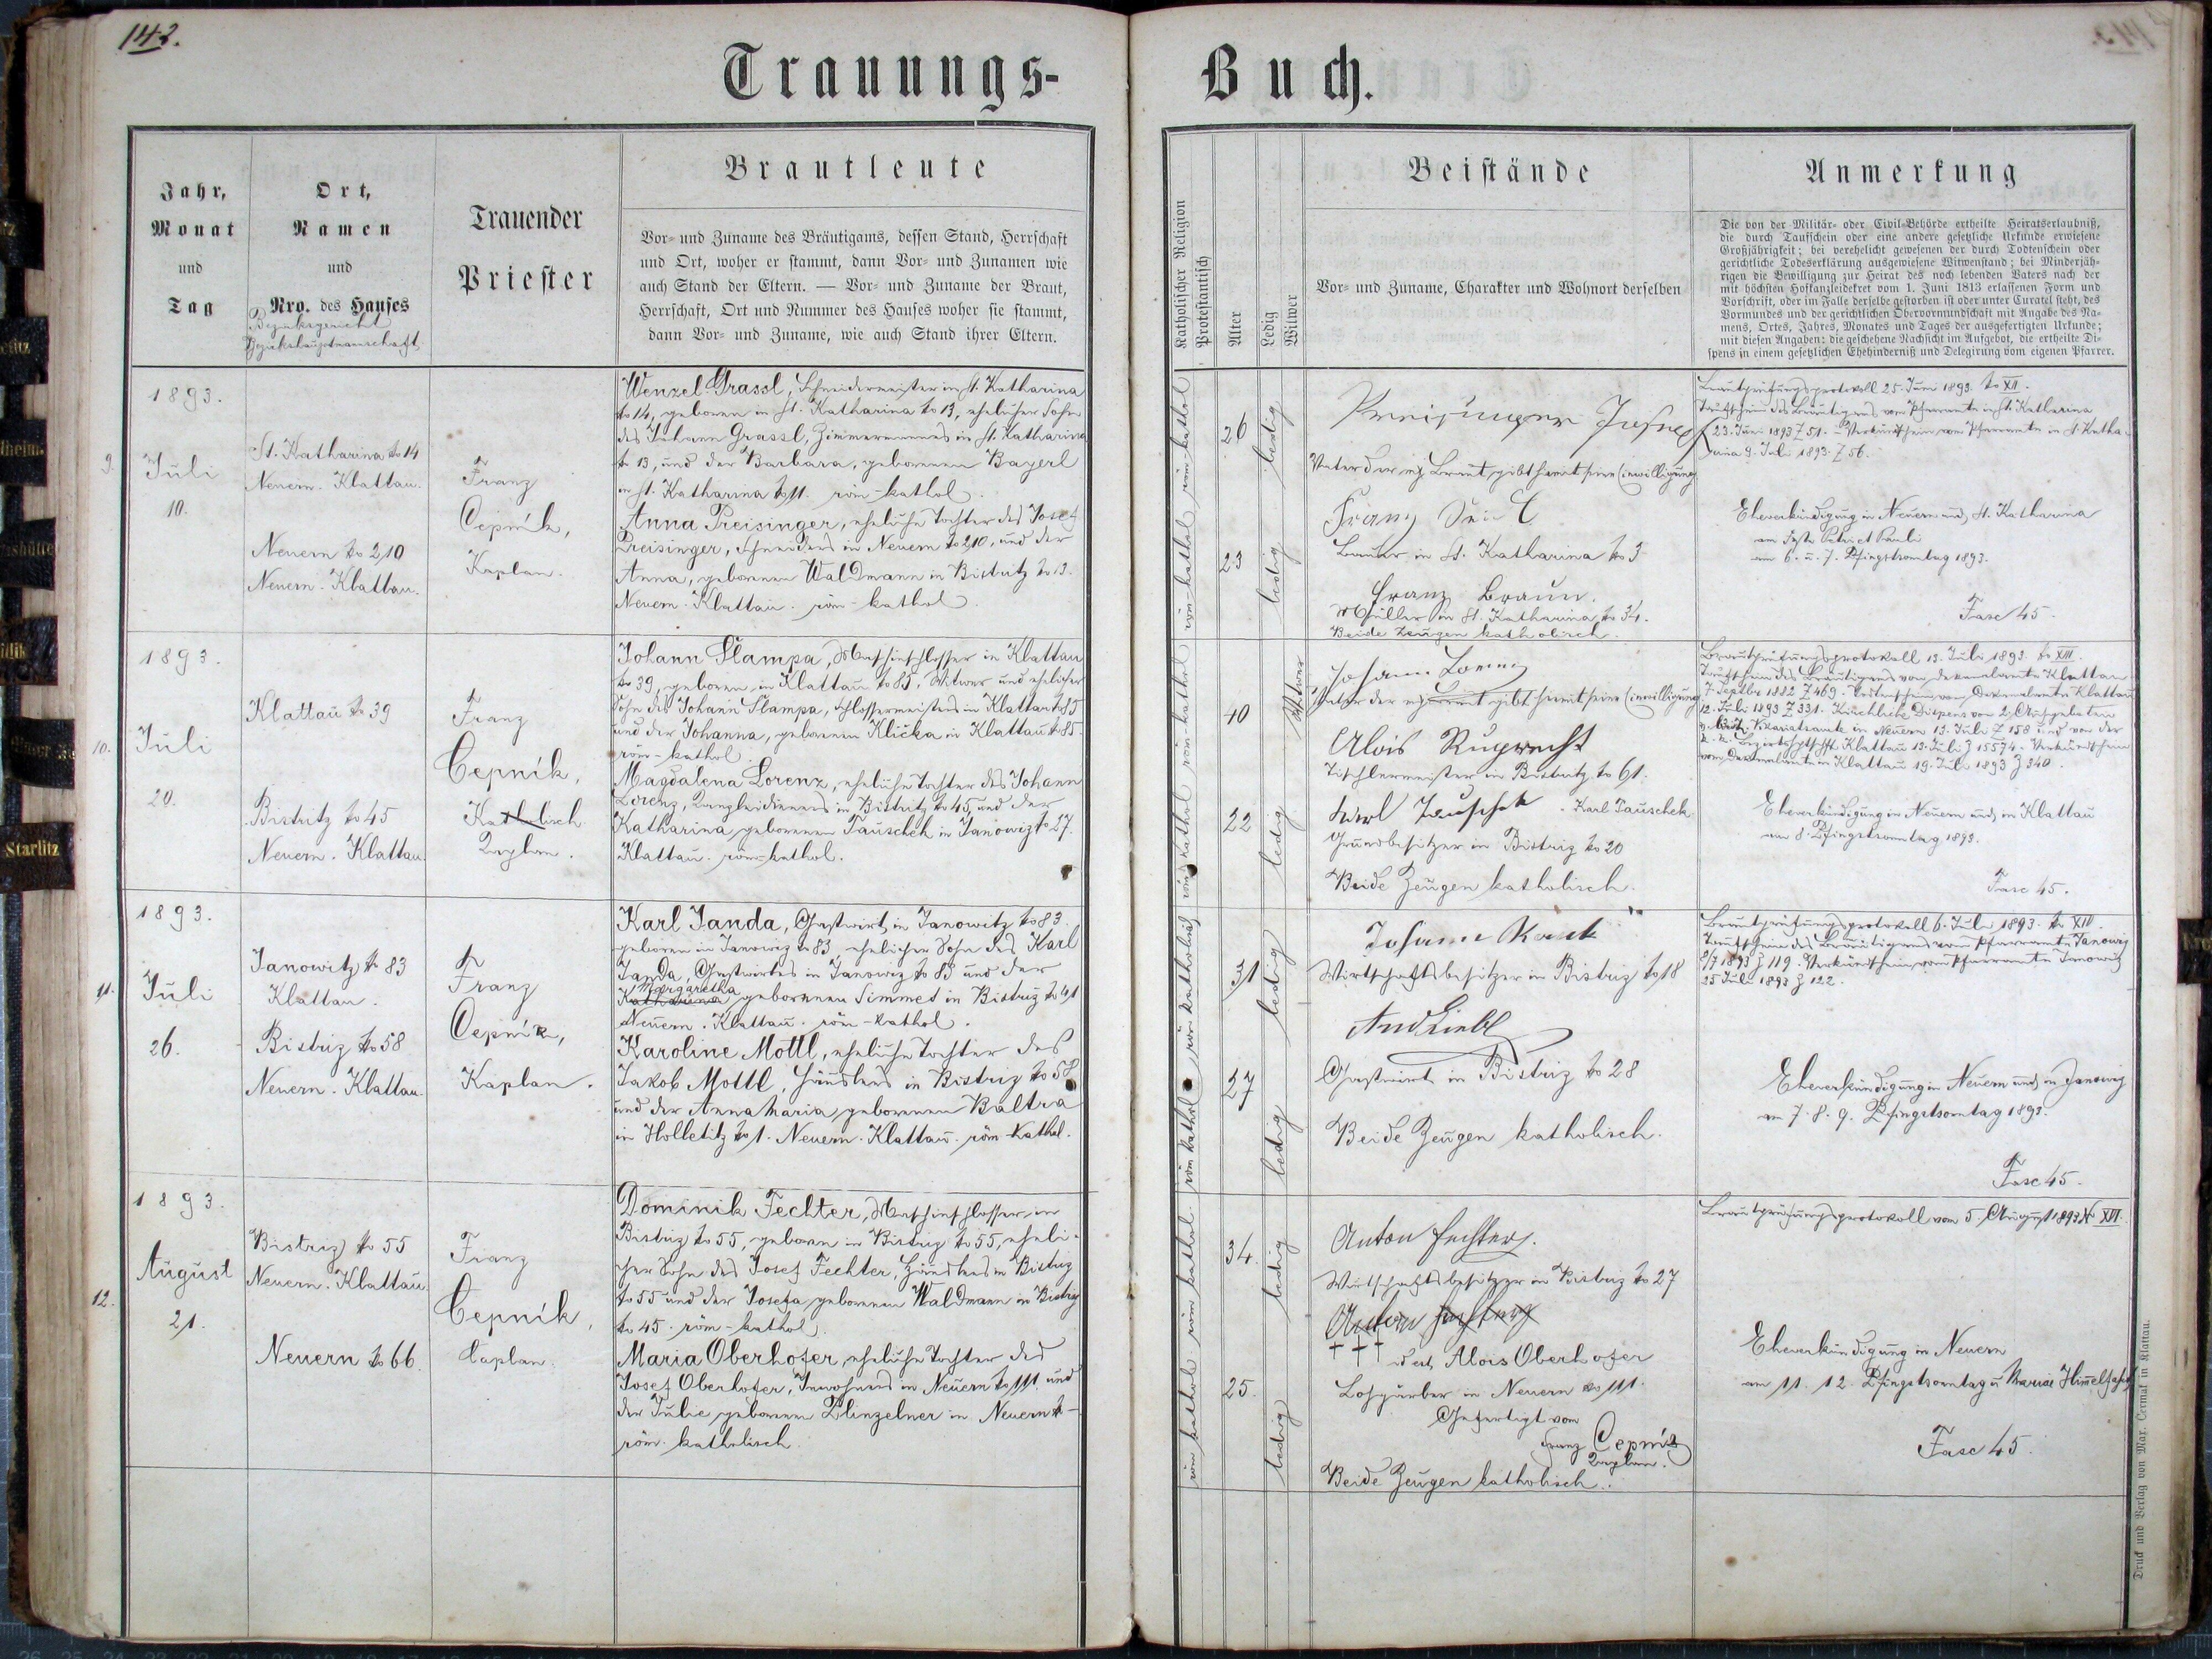 143.
Trauungs-
Buch.
Jahr,
Monat
und
Tag
Ort,
Namen
und
Nro. des Hauses
Bezirksgericht
Bezirkshauptmannschaft
Trauender
Priester
Brautleute
Vor- und Zuname des Bräutigams, dessen Stand, Herrschaft
und Ort, woher er stammt, dann Vor- und Zunamen wie
auch Stand der Eltern. — Vor- und Zuname der Braut,
Herrschaft, Ort und Nummer des Hauses woher sie stammt,
dann Vor- und Zuname, wie auch Stand ihrer Eltern.
Katholischer Religion
Protestantisch
Alter
Ledig
Witwer
Beistände
Vor- und Zuname, Charakter und Wohnort derselben
Anmerkung
Die von der Militär- oder Civil-Behörde ertheilte Heiratserlaubniß,
die durch Taufschein oder eine andere gesetzliche Urkunde erwiesene
Großjährigkeit; bei verehelicht gewesenen der durch Todtenschein oder
gerichtliche Todeserklärung ausgewiesene Witwenstand; bei Minderjäh-
rigen die Bewilligung zur Heirat des noch lebenden Vaters nach der
mit höchsten Hofkanzleidekret vom 1. Juni 1813 erlassenen Form und
Vorschrift, oder im Falle derselbe gestorben ist oder unter Curatel steht, des
Vormundes und der gerichtlichen Obervormundschaft mit Angabe des Na-
mens, Ortes, Jahres, Monates und Tages der ausgefertigten Urkunde;
mit diesen Angaben: die geschehene Nachsicht im Aufgebot, die ertheilte Di-
spens in einem gesetzlichen Ehehinderniß und Delegirung vom eigenen Pfarrer.
9.
1893.
Juli
10.
St. Katharina No 14
Neuern. Klattau.
Neuern No 210
Neuern. Klattau.
Franz
Čepník,
Kaplan.
Wenzel Grassl, Schneidermeister in St. Katharina
No 14, geboren in St. Katharina No 13, ehelicher Sohn
des Johann Grassl, Zimmermannes in St. Katharina
No 13, und der Barbara, geborenen Bayerl
in St. Katharina No 11. röm-kathol.
Anna Preisinger, eheliche Tochter des Josef
Preisinger, Schneiders in Neuern No 210, und der
Anna, geborenen Waldmann in Bistritz No 13.
Neuern. Klattau. röm-kathol.
röm-kathol röm-kathol
26
ledig
23
ledig
Preisinger Josef
Vater der mj. Braut, gibt hiemit seine Einwilligung
Franz
Bauer in St. Katharina No 3
Franz Braun.
Müller in St. Katharina No 34.
Beide Zeugen katholisch.
Brautprüfungsprotokoll 25. Juni 1893. No XII.
Taufschein des Bräutigams vom Pfarramte in St. Katharina
23. Juni 1893 Z 51. - Verkündschein vom Pfarramte in St. Katha-
rina 9. Juli 1893. Z 56.
Eheverkündigung in Neuern und St. Katharina
am Feste Petri et Pauli
am 6. u. 7. Pfingstsonntag 1893.
Fasc 45.
10.
1893.
Juli
20.
Klattau No 39
Bistritz No 45
Neuern. Klattau.
Franz
Čepník,
Katholisch
Kaplan.
Johann Slampa, Maschinschlosser in Klattau
No 39, geboren in Klattau No 85, Witwer und ehelicher
Sohn des Johann Slampa, Schlossermeisters in Klattau No 85
und der Johanna, geborenen Klička in Klattau No 85.
röm-kathol.
Magdalena Lorenz, eheliche Tochter des Johann
Lorenz, Kanzleidieners in Bistritz No 45, und der
Katharina, geborenen Tauschek in Janowiz No 27.
Klattau. röm-kathol.
röm-kathol röm-kathol
40
Witwer
22
ledig
Johann Lorenz
Vater der mj. Braut gibt hiemit seine Einwilligung
Alois Ruprecht
Tischlermeister in Bistritz No 61.
Karl Tauschek - Karl Tauschek.
Grundbesitzer in Bistriz No 20
Beide Zeugen katholisch.
Brautprüfungsprotokoll 13. Juli 1893. No XIII.
Taufschein des Bräutigams vom Dekanalamte Klattau
7. Septbr 1882 Z 469. - Todtenschein vom Dekanalamte Klattau
12. Juli 1893 Z 331. Kirchliche Dispens von 2 Aufgeboten
v. bisch. Vikariatsamte in Neuern 13. Juli Z 158 und von der
k. k. Bezirkshptschft. Klattau 13. Juli Z 15574. - Verkündschein
vom Dekanalamte in Klattau 19. Juli 1893 Z 340.
Eheverkündigung in Neuern und in Klattau
am 8. Pfingstsonntag 1893.
Fasc 45.
11.
1893.
Juli
26.
Janowitz No 83
Klattau.
Bistriz No 58
Neuern. Klattau.
Franz
Čepník,
Kaplan.
Karl Janda, Gastwirt, in Janowitz No 83.
geboren in Janowiz No 83, ehelicher Sohn des Karl
Janda, Gastwirtes in Janowiz No 83 und der
Margaretha
Katharina geborenen Simmet in Bistriz No 41
Neuern. Klattau. röm-kathol.
Karoline Mottl, eheliche Tochter des
Jakob Mottl, Häuslers in Bistriz No 58
und der Anna Maria, geborenen Baltra
in Holletitz No 1. Neuern. Klattau. röm-kathol.
röm katholisch röm kathol
31
ledig
27
ledig
Johann
Wirtschaftsbesitzer in Bistriz No 18
And Liebl
Gastwirt in Bistriz No 28
Beide Zeugen katholisch.
Brautprüfungsprotokoll 6. Juli 1893. No XIV.
Taufschein des Bräutigams vom Pfarramte Janowiz
8/7 1893 Z 119. Verkündschein vom Pfarramte Janowiz
25 Juli 1893 Z 122.
Eheverkündigung in Neuern und in Janowiz
am 7. 8. 9. Pfingstsonntag 1893.
Fasc 45.
12.
1893.
August
21.
Bistriz No 55
Neuern. Klattau.
Neuern No 66.
Franz
Čepník,
Caplan.
Dominik Fechter, Maschinschlosser in
Bistriz No 55, geboren in Bistriz No 55, eheli-
cher Sohn des Josef Fechter, Häuslers in Bistriz
No 55 und der Josefa, geborenen Waldmann in Bistriz
No 45. röm-kathol.
Maria Oberhofer, eheliche Tochter des
Josef Oberhofer, Inwohners in Neuern No 111. und
der Julie geborenen Blinzelner in Neuern No -
röm. katholisch.
röm kathol. röm kathol
34.
ledig
25.
ledig
Anton Fechter.
Wirtschaftsbesitzer in Bistriz No 27
Anton Fechter
+ + + Alois Oberhofer
Lohgerber in Neuern No 111.
Gefertigt vom
Franz Čepník
Kaplan.
Beide Zeugen katholisch.
Brautprüfungsprotokoll vom 5. August 1893 No XVI.
Eheverkündigung in Neuern
am 11. 12. Pfingstsonntag u Mariä Himmelfahrt
Fasc 45.
Druck und Verlag von Max. Čermak in Klattau.
Starlitz